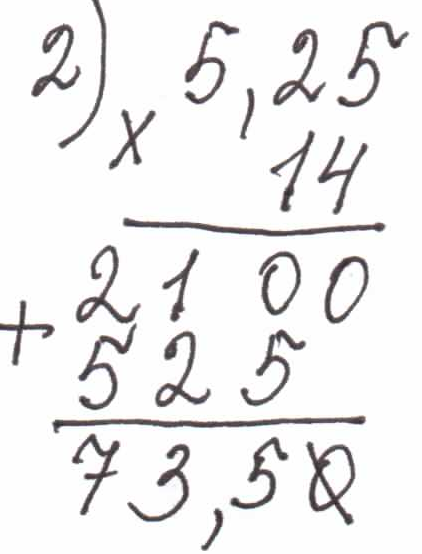 2) 5,25
× 14
2100
+ 525
73,50